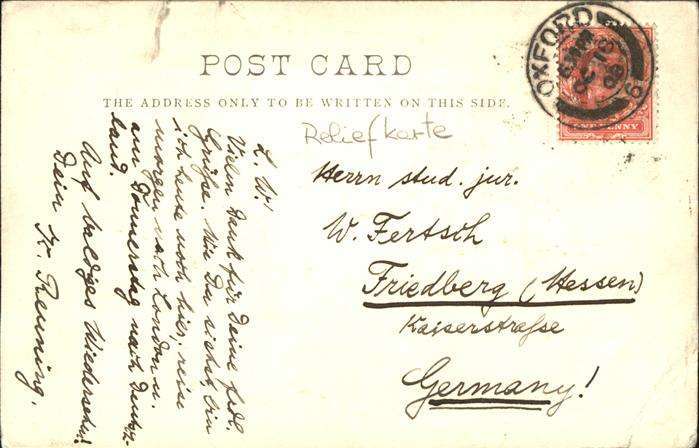 POST CARD
THE ADDRESS ONLY TO BE WRITTEN ON THIS SIDE.
Reliefkarte
OXFORD
OC 13
03
6
ONE PENNY
Herrn stud. jur.
W. Fertsch
Friedberg (Hessen)
Kaiserstraße
Germany!
L. W!
Vielen Dank für Deine frdl.
Grüße. Wie Du siehst, bin
ich heute noch hier, reise
morgen nach London u.
am Donnerstag nach Deutsch-
land.
Auf baldiges Wiedersehn!
Dein K. Reuning.